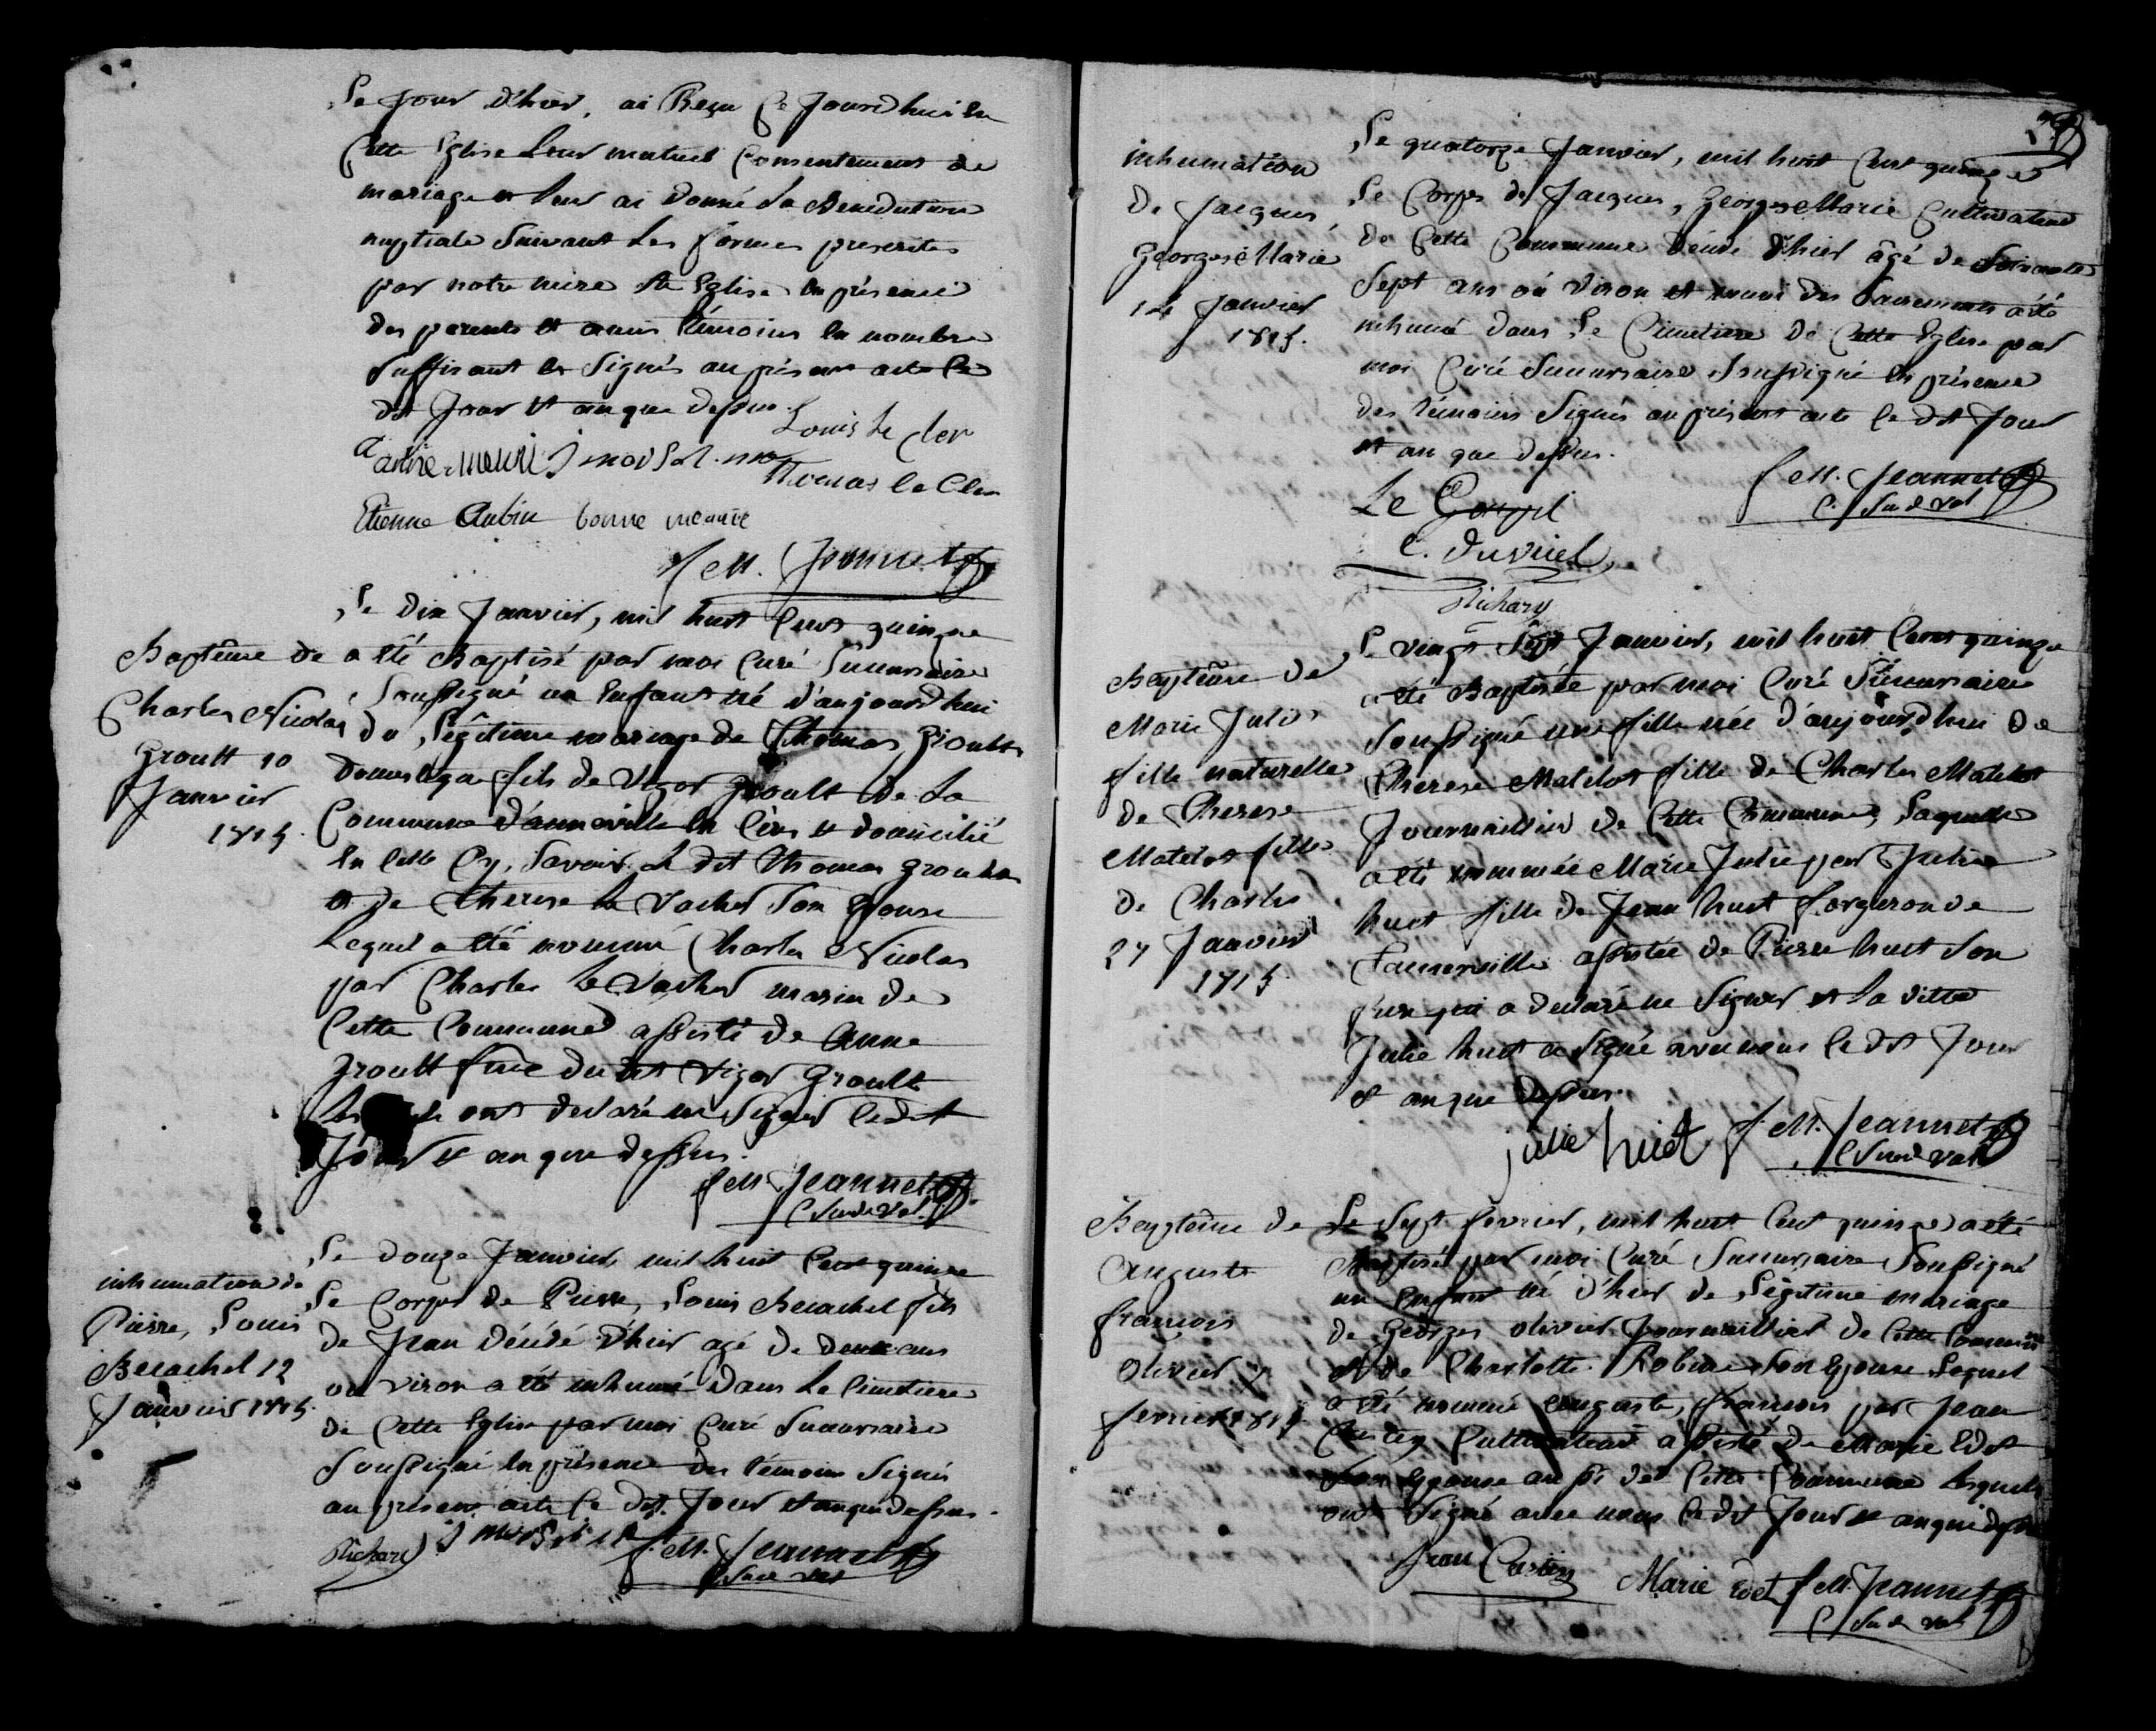 Le Jour d'hier, ai Reçu Ce Jourd'hui en
Cette Eglise Leur mutuel Consentement de
mariage et leur ai Donné La Benediction
nuptiale Suivant Les formes prescrites
par notre mere Ste Eglise en présence
des parents et amis témoins en nombre
Suffisant et Signés au présent acte Ce
dit Jour et an que dessus.
Louis le cler
Thomas le Cler
Etienne Aubin bonne
f. M. Jeannet
Baptême de
Charles Nicolas
Groult 10
Janvier
1815.
Le dix Janvier, mil huit Cent quinze
a été Baptisé par moi Curé Succursaire
Soussigné un Enfant né d'aujourd'hui
du Légitime mariage de Thomas Groult
Domestique fils de Vigor Groult de La
Commune d'anneville en Cère et domicilié
en Celle Cy, Savoir Le dit Thomas Groult
et de Therese le Vacher Son Epouse
Lequel a été nommé Charles Nicolas
par Charles le Vacher marin de
Cette Commune assisté de Anne
Groult fille du dit Vigor Groult
ont declaré ne Signer Cedit
Jour et an que dessus.
f. M. Jeannet
C. Su de Val.
inhumation de
Pierre, Louis
Becachel 12
Janvier 1815.
Le douze Janvier, mil huit Cent quinze
Le Corps de Pierre, Louis Becachel fils
de Jean Décédé d'hier agé de deux ans
ou viron a été inhumé Dans Le Cimetiere
de Cette Eglise par moi Curé Succursaire
Soussigné en présence des témoins Signés
au présent acte Ce dit Jour et an que dessus.
Richard
f. M. Jeannet
C. Su de Val
inhumation
de Jacques,
Georges Marie
14 Janvier
1815.
Le quatorze Janvier, mil huit Cent quinze
Le Corps de Jacques, Georges Marie Cultivateur
de Cette Commune Décédé d'hier âgé de Soixante
Sept ans ou viron et muni des Sacremens a été
inhumé dans Le Cimetiere de Cette Eglise par
moi Curé Succursaire Soussigné en présence
des témoins Signés au présent acte Ce dit Jour
et an que dessus.
f. M. Jeannet
C. Su de Val
Le Goupil
C. Duvriel
Richard
Baptême de
Marie Julie
fille naturelle
de Therese
Matelot fille
de Charles
27 Janvier
1815
Le vingt Sept Janvier, mil huit Cent quinze
a été Baptisée par moi Curé Succursaire
Soussigné une fille née d'aujourd'hui de
Therese Matelot fille de Charles Matelot
Journaillier de Cette Commune, Laquelle
a été nommée Marie Julie par Julie
huet fille de Jean huet forgeron de
assistée de Pierre huet Son
qui a declaré ne Signer et La ditte
Julie huet a Signé avec nous Ce dit Jour
et an que dessus.
julie huet f. M. Jeannet
C. Su de Val
Baptême de
Auguste
françois
Olivier 7
fevrier 1815
Le Sept fevrier, mil huit Cent quinze a été
Baptisé par moi Curé Succursaire Soussigné
un Enfant né d'hier de Légitime mariage
de Georges olivier Journaillier de Cette Commune
et de Charlotte Robine Son Epouse Lequel
a été nommé Auguste, françois par Jean
Cultivateur assisté de Marie Edet
Son Epouse aussi de Cette Commune Lesquels
ont Signé avec nous Ce dit Jour et an que dessus
Jean
Marie Edet f. M. Jeannet
C. Su de Val